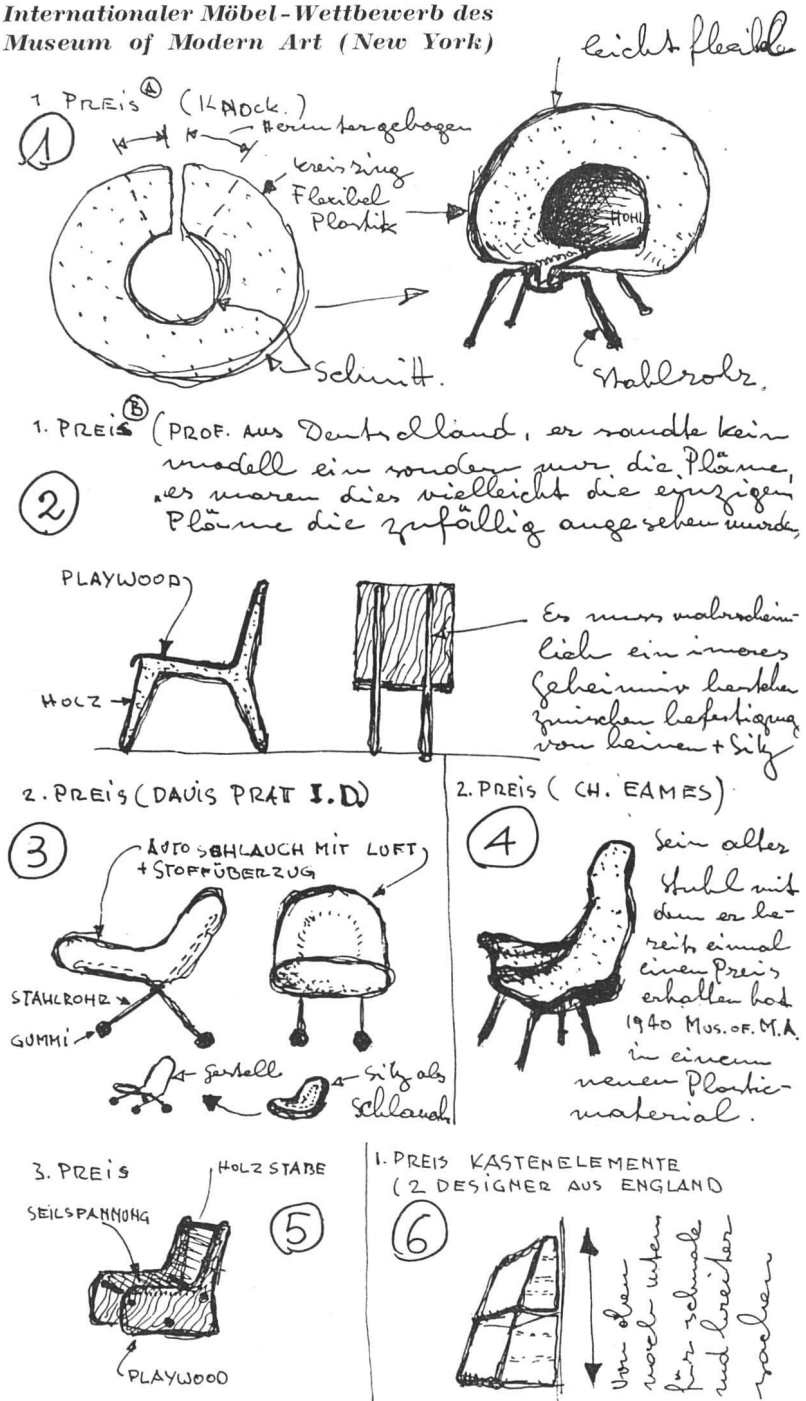 Internationaler Möbel-Wettbewerb des
Museum of Modern Art (New York)
leicht flexibel
1 PREIS Ⓐ (KNOCK.)
①
Heruntergebogen
Kreisring
Flexibel
Plastik
HOHL
Schnitt.
Stahlrohr.
1. PREIS Ⓑ (PROF. AUS Deutschland, er sandte kein
modell ein sondern nur die Pläne,
es waren dies vielleicht die einzigen
Pläne die zufällig angesehen wurden,
②
PLAYWOOD
HOLZ
Es muss wahrschein-
lich ein inneres
Geheimnis bestehen
zwischen befestigung
von beinen + Sitz
2. PREIS (DAVIS PRAT I.D.)
③
AUTOSCHLAUCH MIT LUFT
+ STOFFÜBERZUG
STAHLROHR
GUMMI
Gestell
Sitz als
Schlauch
2. PREIS ( CH. EAMES)
④
Sein alter
Stuhl mit
dem er be-
reits einmal
einen Preis
erhalten hat
1940 MUS. OF. M.A.
in einem
neuen Plastic-
material.
3. PREIS
HOLZSTABE
SEILSPANNUNG
⑤
PLAYWOOD
1. PREIS KASTENELEMENTE
(2 DESIGNER AUS ENGLAND
⑥
Von oben
nach unten
für schmale
und breiter
sachen